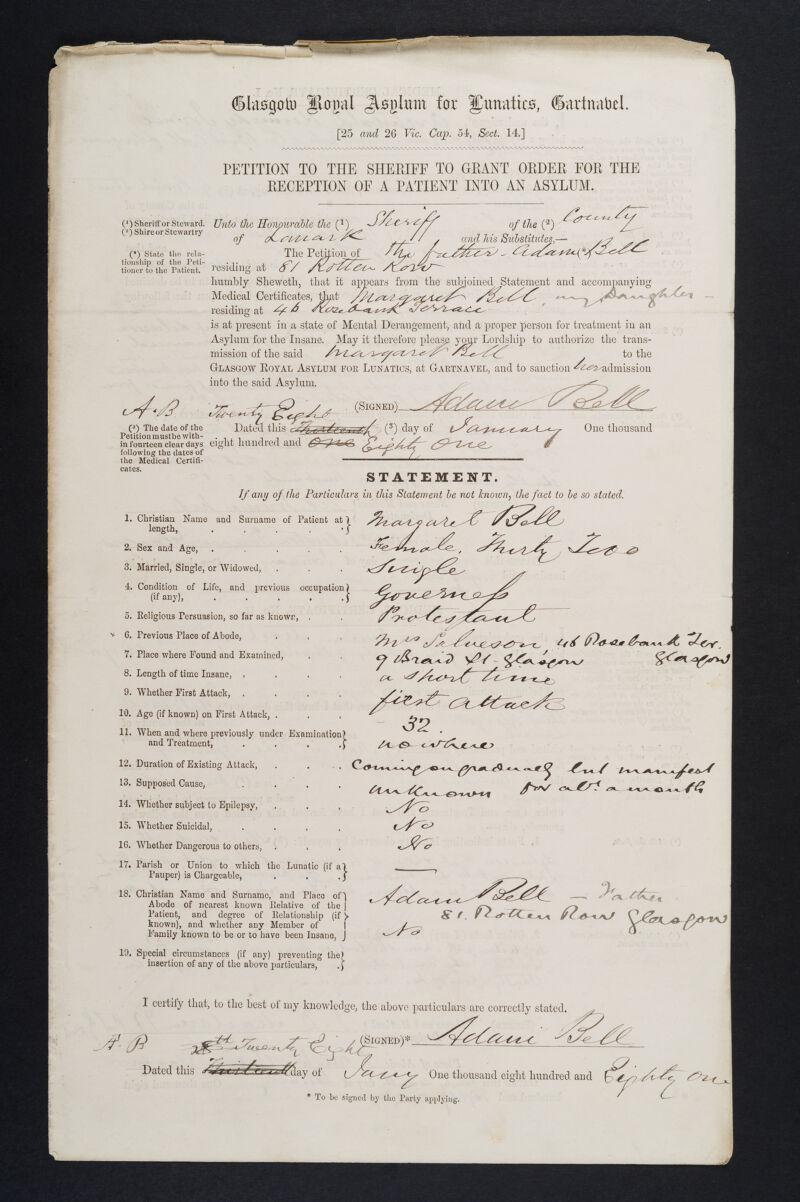 Glasgow Royal Asylum for Lunatics, Gartnavel.
[25 and 26 Vic. Cap. 54, Sect. 14.]
PETITION TO THE SHERIFF TO GRANT ORDER FOR THE
RECEPTION OF A PATIENT INTO AN ASYLUM.
(¹) Sheriff or Steward.
(²) Shire or Stewartry
(³) State the rela-
tionship of the Peti-
tioner to the Patient.
Unto the Honourable the (¹) Sheriff of the (²) County
of Lanark and his Substitutes,—
The Petition of the father - Adam (³) Bell
residing at 81 Rotten Row
humbly Sheweth, that it appears from the subjoined Statement and accompanying
Medical Certificates, that Margaret Bell, my Daughter —
residing at 46 Rosebank Terrace
is at present in a state of Mental Derangement, and a proper person for treatment in an
Asylum for the Insane. May it therefore please your Lordship to authorize the trans-
mission of the said Margaret Bell to the
GLASGOW ROYAL ASYLUM FOR LUNATICS, at GARTNAVEL, and to sanction her admission
into the said Asylum.
(SIGNED) Adam Bell
A. B Twenty Eight
(³) The date of the
Petition must be with-
in fourteen clear days
following the dates of
the Medical Certifi-
cates.
Dated this Thirteenth (³) day of January One thousand
eight hundred and one Eighty One
STATEMENT.
If any of the Particulars in this Statement be not known, the fact to be so stated.
1. Christian Name and Surname of Patient at
length, Margaret Bell
2. Sex and Age, Female. Thirty Two
3. Married, Single, or Widowed, Single
4. Condition of Life, and previous occupation
(if any), Governess
5. Religious Persuasion, so far as known, Protestant
6. Previous Place of Abode, Mrs Salveson, 46 Rosebank Ter. Glasgow
7. Place where Found and Examined, 9 Braid St. Glasgow
8. Length of time Insane, a short time
9. Whether First Attack, first attack
10. Age (if known) on First Attack, 32.
11. When and where previously under Examination
and Treatment, no where
12. Duration of Existing Attack, Coming on gradually but manifest for abt. a month
13. Supposed Cause, unknown
14. Whether subject to Epilepsy, No
15. Whether Suicidal, No
16. Whether Dangerous to others, No
17. Parish or Union to which the Lunatic (if a
Pauper) is Chargeable, —
18. Christian Name and Surname, and Place of
Abode of nearest known Relative of the
Patient, and degree of Relationship (if
known), and whether any Member of
Family known to be or to have been Insane,
Adam Bell — Father
81. Rotten Row Glasgow
No
19. Special circumstances (if any) preventing the
insertion of any of the above particulars,
I certify that, to the best of my knowledge, the above particulars are correctly stated.
(SIGNED)* Adam Bell
A. B 28th Twenty Eight
Dated this Thirteenth day of Jany One thousand eight hundred and Eighty One
* To be signed by the Party applying.